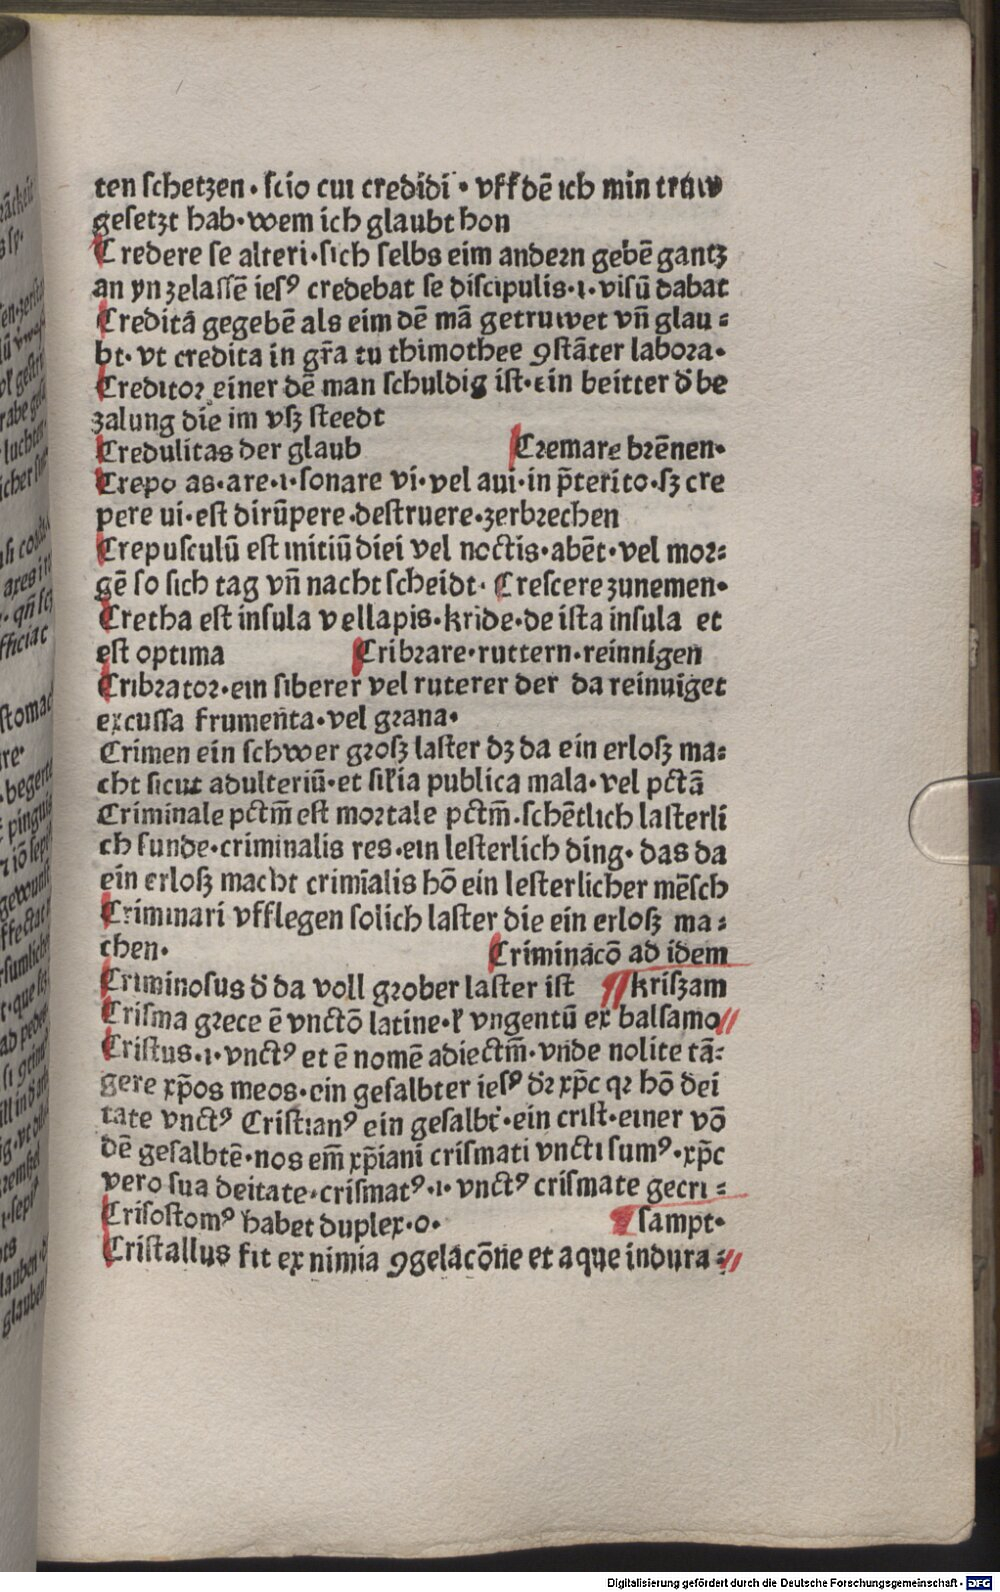 ten schetzen · scio cui credidi · vff dē ich min truw
gesetzt hab · wem ich glaubt hon
Credere se alteri · sich selbs eim andern gebē gantz
an yn zelassē iesꝰ credebat se discipulis · i · visū dabat
Creditā gegebē als eim dē mā getruwet vñ glau⸗
bt · vt credita in gr̄a tu thimothee ꝯstāter labora ·
Creditor einer dē man schuldig ist · ein beitter d̄ be
zalung die im vsz steedt
Credulitas der glaub Cremare brēnen ·
Crepo as · are · i · sonare vi · vel aui · in p̄terito · sz cre
pere ui · est dirūpere · destruere · zerbrechen
Crepusculū est initiū diei vel noctis · abēt · vel mor⸗
gē so sich tag vñ nacht scheidt · Crescere zunemen ·
Cretha est insula vel lapis · kride · de ista insula et
est optima Cribrare · ruttern · reinnigen
Cribrator · ein siberer vel ruterer der da reinuiget
excussa frumenta · vel grana ·
Crimen ein schwer grosz laster dz da ein erlosz ma⸗
cht sicut adulteriū · et silia publica mala · vel pctā
Criminale pctm̄ est mortale pctm̄ · schētlich lasterli
ch sunde · criminalis res · ein lesterlich ding · das da
ein erlosz macht crimīalis hō ein lesterlicher mēsch
Criminari vfflegen solich laster die ein erlosz ma⸗
chen · Crimināco̅ ad idem
Criminosus d̄ da voll grober laster ist kriszam
Crisma grece ē vnctō latine · ł vngentū ex balsamo
Cristus · i · vnctꝰ et ē nomē adiectm̄ · vnde nolite tā⸗
gere xp̄os meos · ein gesalbter iesꝰ dr xp̄c qr hō dei
tate vnctꝰ Cristianꝰ ein gesalbt · ein crist · einer vō
dē gesalbtē · nos em̄ xp̄iani crismati vncti sumꝰ · xp̄c
vero sua deitate · crismatꝰ · i · vnctꝰ crismate gecri⸗
Crisostomꝰ habet duplex · o · sampt ·
Cristallus fit ex nimia ꝯgelacōne et aque indura⸗
Digitalisierung gefördert durch die Deutsche Forschungsgemeinschaft - DFG